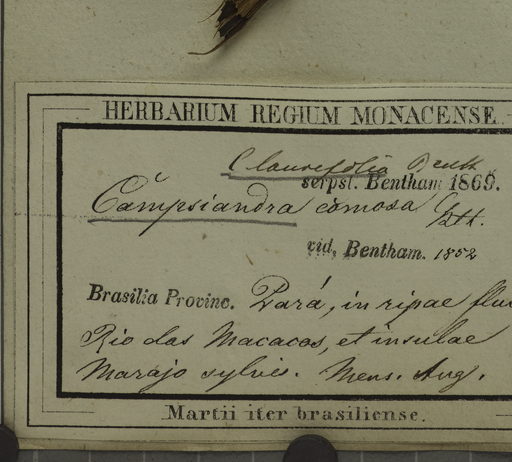 HERBARIUM REGIUM MONACENSE.
C. laurifolia Benth
scrpst. Bentham 1869.
Campsiandra comosa Bth.
vid. Bentham. 1852
Brasilia Provinc. Pará, in ripae flu
Rio das Macacos, et insulae
Marajo sylvis. Mens. Aug.
Martii iter brasiliense.